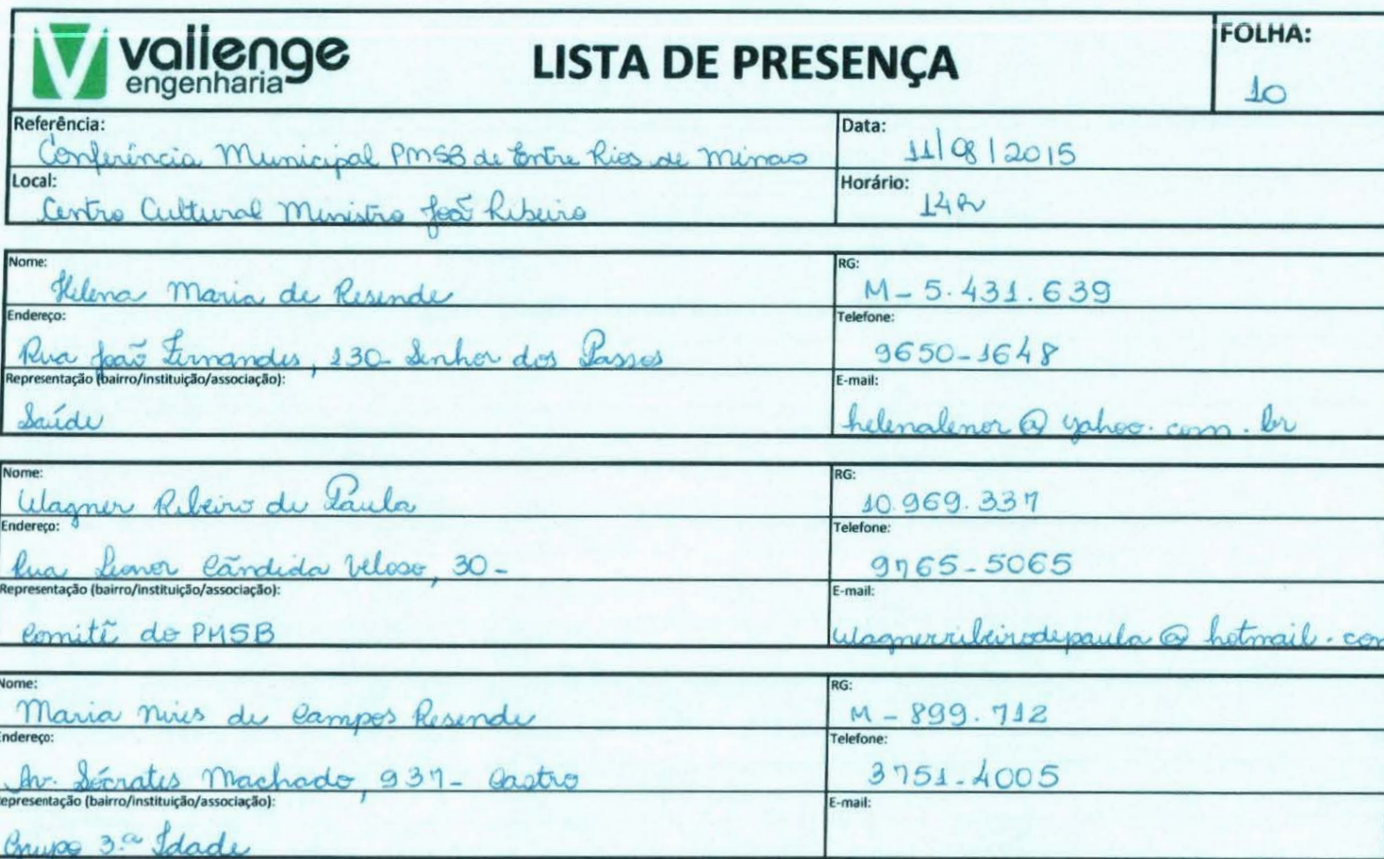 vallenge
engenharia
LISTA DE PRESENÇA
FOLHA:
10
Referência:
Conferência Municipal PMSB de Entre Rios de Minas
Data:
11/08/2015
Local:
Centro Cultural Ministro João Ribeiro
Horário:
14h
Nome:
Helena Maria de Resende
RG:
M-5.431.639
Endereço:
Rua João Fernandes, 130- Senhor dos Passos
Telefone:
9650-1648
Representação (bairro/instituição/associação):
Saúde
E-mail:
helenalenor@yahoo.com.br
Nome:
Wagner Ribeiro de Paula
RG:
10.969.337
Endereço:
Rua Leonor Cândida Veloso, 30-
Telefone:
9765-5065
Representação (bairro/instituição/associação):
Comitê do PMSB
E-mail:
wagnerribeirodepaula@hotmail.com
Nome:
Maria Nives de Campos Resende
RG:
M-899.712
Endereço:
Av. Sócrates Machado, 937- Castro
Telefone:
3751-4005
Representação (bairro/instituição/associação):
Grupo 3.ª Idade
E-mail: